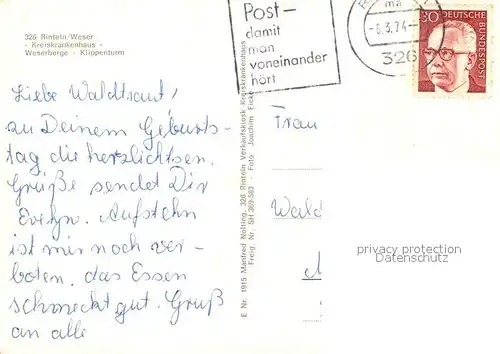 326 Rinteln/Weser
- Kreiskrankenhaus -
Weserberge - Klippenturm
Liebe Waldtraut,
zu Deinem Geburts-
tag die herzlichsten
Grüße sendet Dir
Evelyn. Aufstehn
ist mir noch ver-
boten, das Essen
schmeckt gut. Gruß
an alle
E Nr. 1915 Manfred Nolting, 326 Rinteln Verkaufskiosk Kreiskrankenhaus
Freig. Nr. SH 369-583 - Foto Joachim
Post-
damit
man
voneinander
hört
ma
-6.3.74
326
30 DEUTSCHE
BUNDESPOST
Frau
Wald
privacy protection
Datenschutz